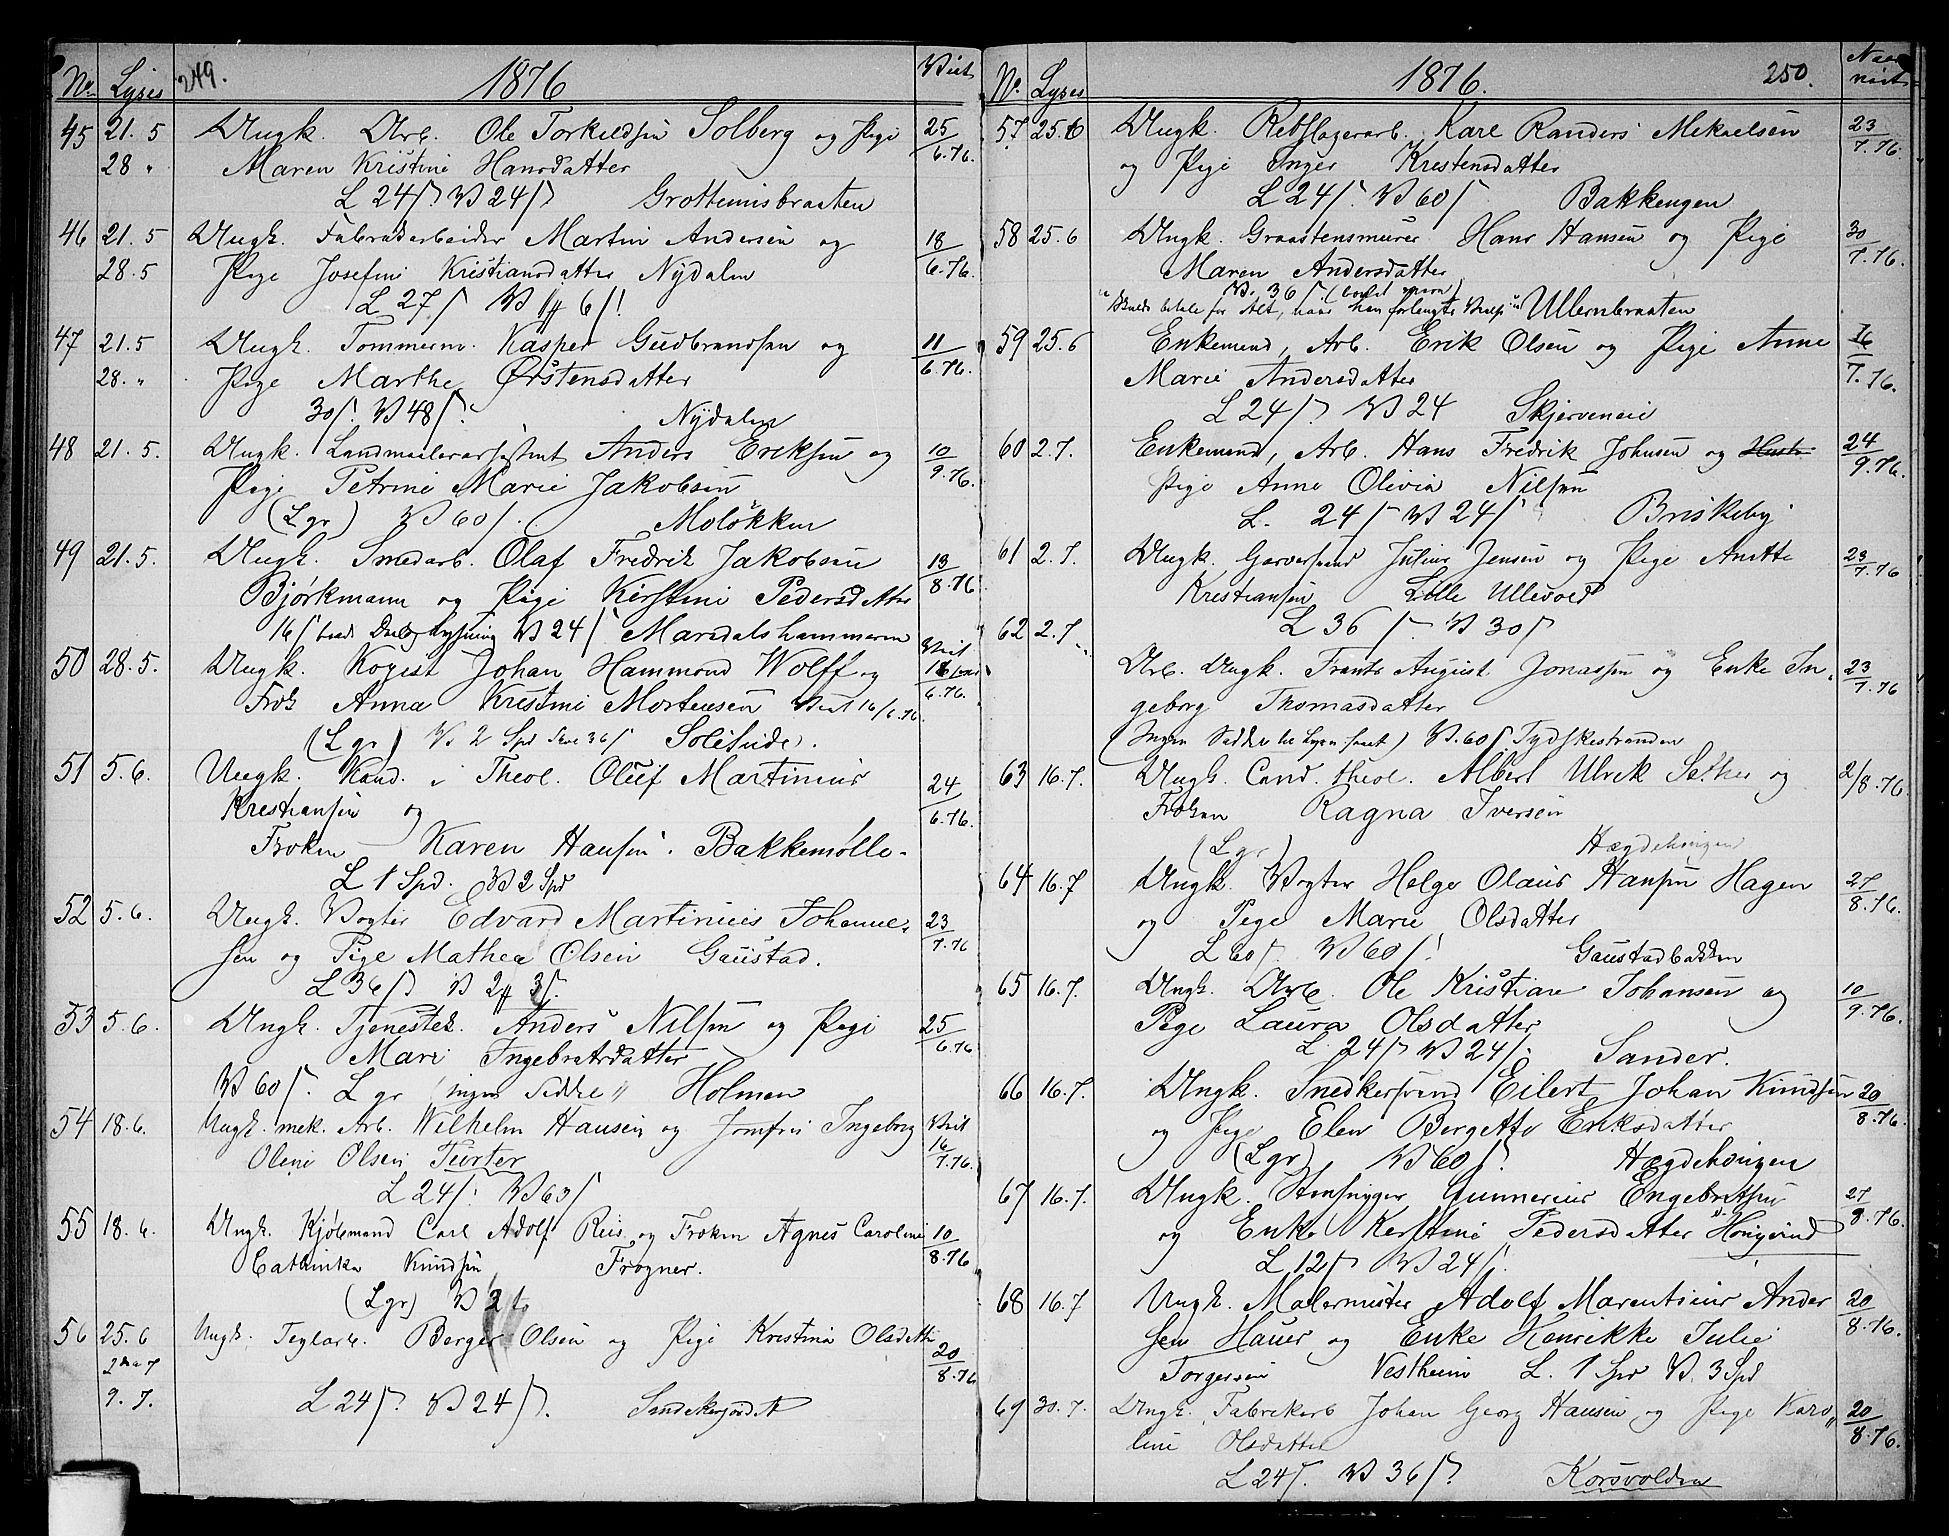 No. Lyses 249. 1876 Viet
45 21.5 Ungk. Arb. Ole Torkildsen Solberg og Pige 25/6.76.
28 " Maren Kristine Hansdatter
L 24 ſ? V 24 ſ? Grottemisbraaten
46 21.5 Ungk. Fabrikarbeider Martin Andersen og 18/6.76.
28.5 Pige Josefine Kristiansdatter Nydalen
L 27 ſ V 6 ſ!
47 21.5 Ungk. Tømmerm. Kasper Gudbrandsen og 11/6.76.
28. " Pige Marthe Ørstensdatter
30 ſ. V 48 ſ. Nydalen
48 21.5. Ungk. Landmaalerassistent Anders Eriksen og 10/9.76.
Pige Petrine Marie Jakobsen
(L gr) V 60 ſ. Moløkken
49 21.5. Ungk. Smedarb. Olaf Fredrik Jakobsen 13/8.76
Bjørkmann og Pige Kirstine Pedersdatter
16 ſ Lysning V 24 ſ Maridalshammeren
50 28.5. Ungk. Kopist Johan Hammond Wolff og Viet 16/6.76.
Frøk Anna Kristine Mortensen Viet 16/6.76.
(L gr) V 2 Spd 36 ſ Solitude.
51 5.6. Ungk. Kand. i Theol. Oluf Martinius 24/6.76.
Kristiansen og
Frøken Karen Hansen. Bakkemølle.
L 1 Spd. V 2 Spd
52 5.6. Ungk. Vogter Edvard Martinius Johanne- 23/7.76
sen og Pige Mathea Olsen Gaustad.
L 36 ſ? V 2 3 ſ.
53 5.6. Ungk. Tjenestek. Anders Nilsen og Pige 25/6.76
Mari Ingebratsdatter
V 60 ſ. L gr "ingen Seddel" Holmen
54 18.6. Ungk. mek. Arb. Wilhelm Hansen og Jomfru Ingeborg Viet 16/7.76.
Oline Olsen Turter
L 24 ſ. V 63 ſ
55 18.6. Ungk. Kjøbmand Carl Adolf Riis og Frøken Agnes Caroline 10/8.76
Cathinka Knudsen Frogner.
(L gr) V 2
56 25.6 Ungk. Teglarb. Berger Olsen og Pige Kristine Olsdatter 20/8.76
2den 7
9.7. L 24 ſ? V 24 ſ. Sandakerjordet
No. Lyses 1876. 250.
57 25.6 Ungk. Rebslagerarb. Karl Randers Mekaelsen 23/7.76.
og Pige Inger Krestensdatter
L 24 ſ. V 60 ſ Bakkengen
58 25.6 Ungk. Graastensmurer Hans Hansen og Pige 30/7.76.
Maren Andersdatter
V. 36 ſ
"Skulde betale for Alt, naar han forlangte" Ullernbraaten
59 25.6 Enkemand, Arb. Erik Olsen og Pige Anne 16/7.76.
Marie Andersdatter
L 24 ſ? V 24 Skjerveneie
60 2.7. Enkemand, Arb. Hans Fredrik Johnsen og 24/9.76.
Pige Anne Olivia Nilsen
L. 24 ſ V 24 ſ Briskeby
61 2.7. Ungk. Garversvend Julius Jensen og Pige Anette 23/7.76
Kristiansen Lille Ullevold
62 2.7 L 36 ſ. V 30 ſ
Arb. Ungk. Frants August Jonassen og Enke In- 23/7.76
geborg Thomasdatter
(Ingen Seddel til Lysn. faaet) V. 60 ſ Tydskestranden
63 16.7. Ungk. Cand. theol. Albert Ulrik Sether og 2/8.76.
Frøken Ragna Iversen
(L gr) Hægdehougen
64 16.7 Ungk. Vogter Helge Olaus Hansen Hagen 27/8.76.
og Pige Marie Olsdatter
L 60 ſ. V 60 ſ! Gaustadbakken
65 16.7. Ungk. Arb. Ole Kristian Johansen og 10/9.76.
Pige Laura Olsdatter
L 24 ſ? V 24 ſ. Sander.
66 16.7. Ungk. Snedkersvend Eilert Johan Knudsen 20/8.76.
og Pige Elen Bergette Eriksdatter
(L gr) V 60 ſ? Hægdehougen
67 16.7. Ungk. Stenhugger Gunnerius Engebretsen 27/8.76.
og Enke Kerstine Pedersdatter Hougerud
L 12 ſ? V 24 ſ.
68 16.7 Ungk. Malermester Adolf Marentius Ander 20/8.76.
sen Hauer og Enke Henrikke Julie
Torgersen Vestheim L. 1 Spd V. 3 Spd
69 30.7. Ungk. Fabrikarb Johan Georg Hansen og Pige Karo- 20/8.76.
line Olsdatter
L 24 ſ. V 36 ſ? Korsvolden